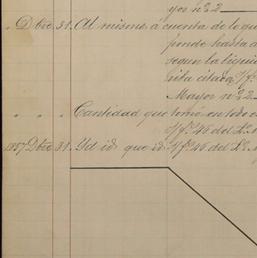 yor nº 2
" Dbre 31. Al mismo á cuenta de lo que
ponde hasta
segun la liqui
rita citada, f/º
Mayor nº 2
" " " Cantidad que tomó en todo e
f/º 46 del L.º M
1857 Dbre 31. Id id que id. f/º 46 del L.º M